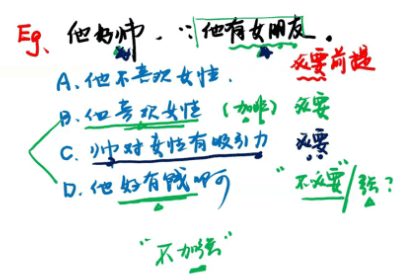 Eg、他好帅. ∵ 他有女朋友.
必要前提
A、他不喜欢女性.
B、他喜欢女性 (加非) 必要
C、帅对女性有吸引力 必要
D、他好有钱啊 "不必要"/强?
"不加强"